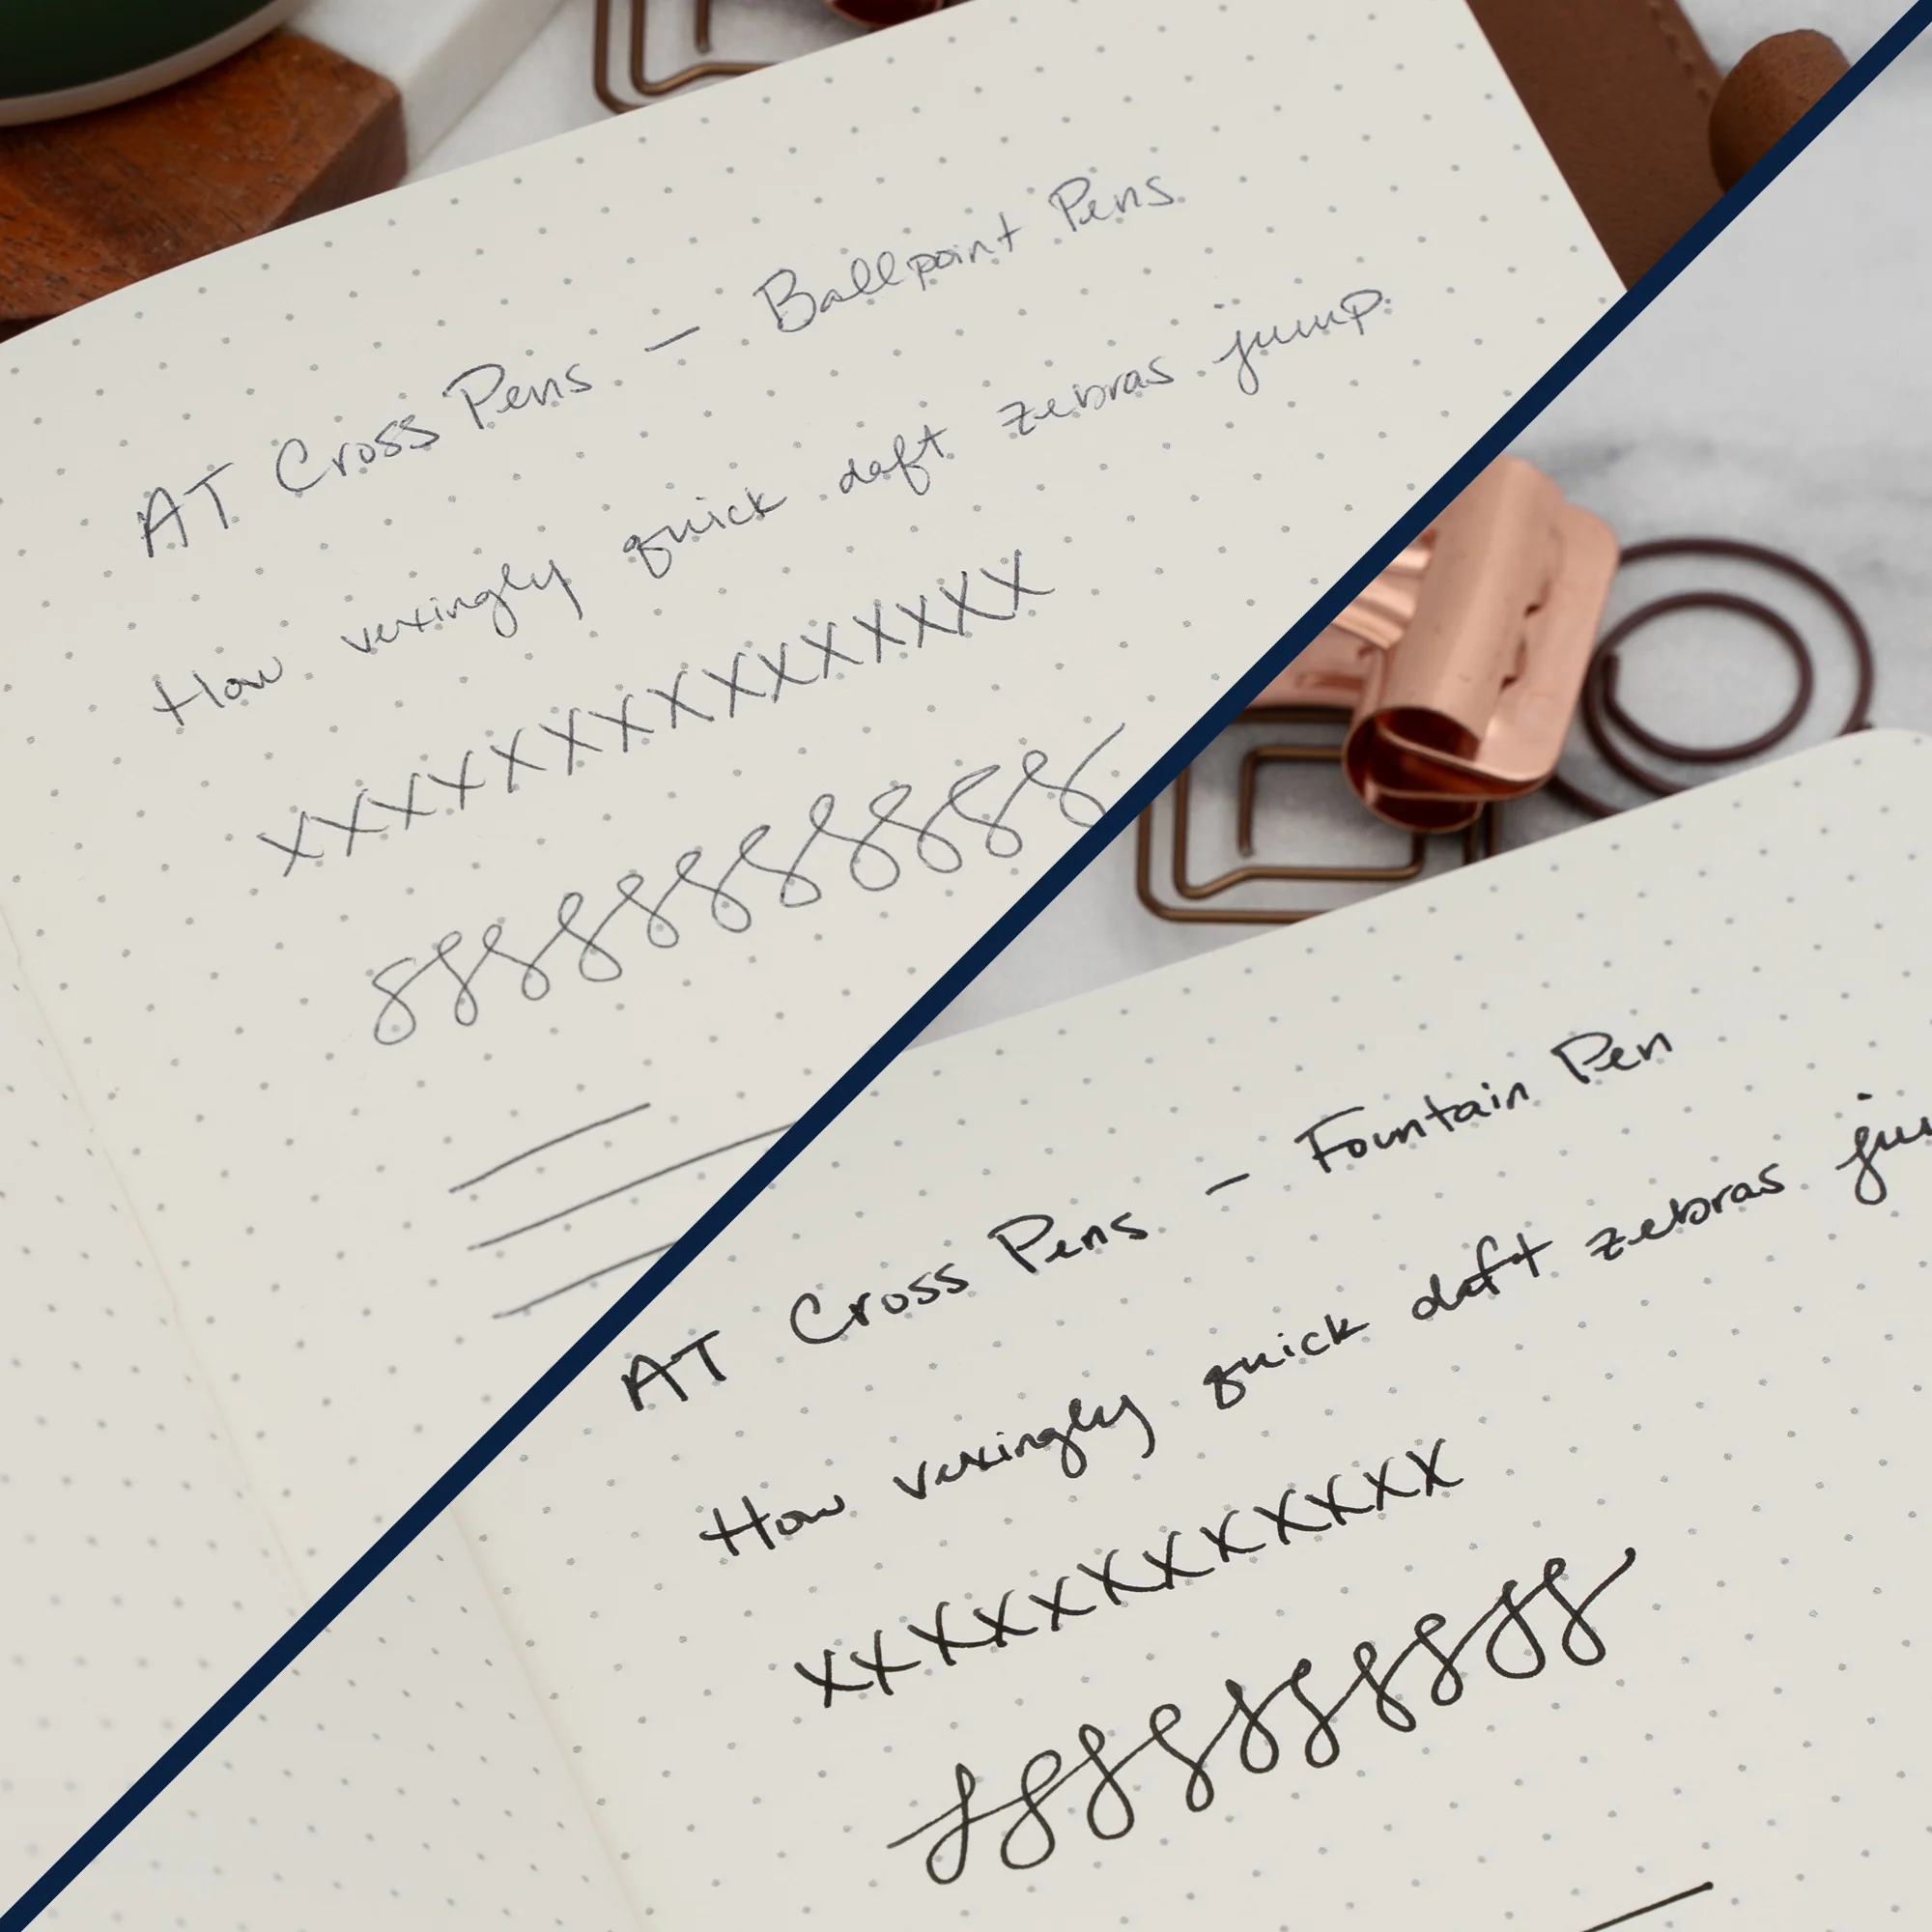 AT Cross Pens - Ballpoint Pens
How vexingly quick daft zebras jump.
xxxxxxxxxxxxxxx
AT Cross Pens - Fountain Pen
How vexingly quick daft zebras ju
xxxxxxxxxxxx